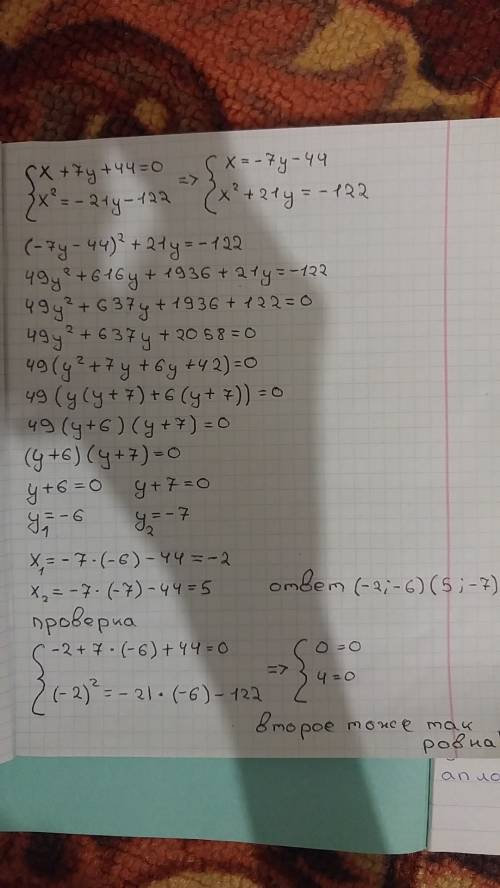 { x + 7y + 44 = 0 => { x = -7y - 44
{ x² = -21y - 122 { x² + 21y = -122
(-7y - 44)² + 21y = -122
49y² + 616y + 1936 + 21y = -122
49y² + 637y + 1936 + 122 = 0
49y² + 637y + 2058 = 0
49(y² + 7y + 6y + 42) = 0
49(y(y + 7) + 6(y + 7)) = 0
49(y + 6)(y + 7) = 0
(y + 6)(y + 7) = 0
y + 6 = 0 y + 7 = 0
y₁ = -6 y₂ = -7
x₁ = -7 · (-6) - 44 = -2
x₂ = -7 · (-7) - 44 = 5 ответ (-2; -6) (5; -7)
проверка
{ -2 + 7 · (-6) + 44 = 0 => { 0 = 0
{ (-2)² = -21 · (-6) - 122 { 4 = 0
второе тоже так
ровна